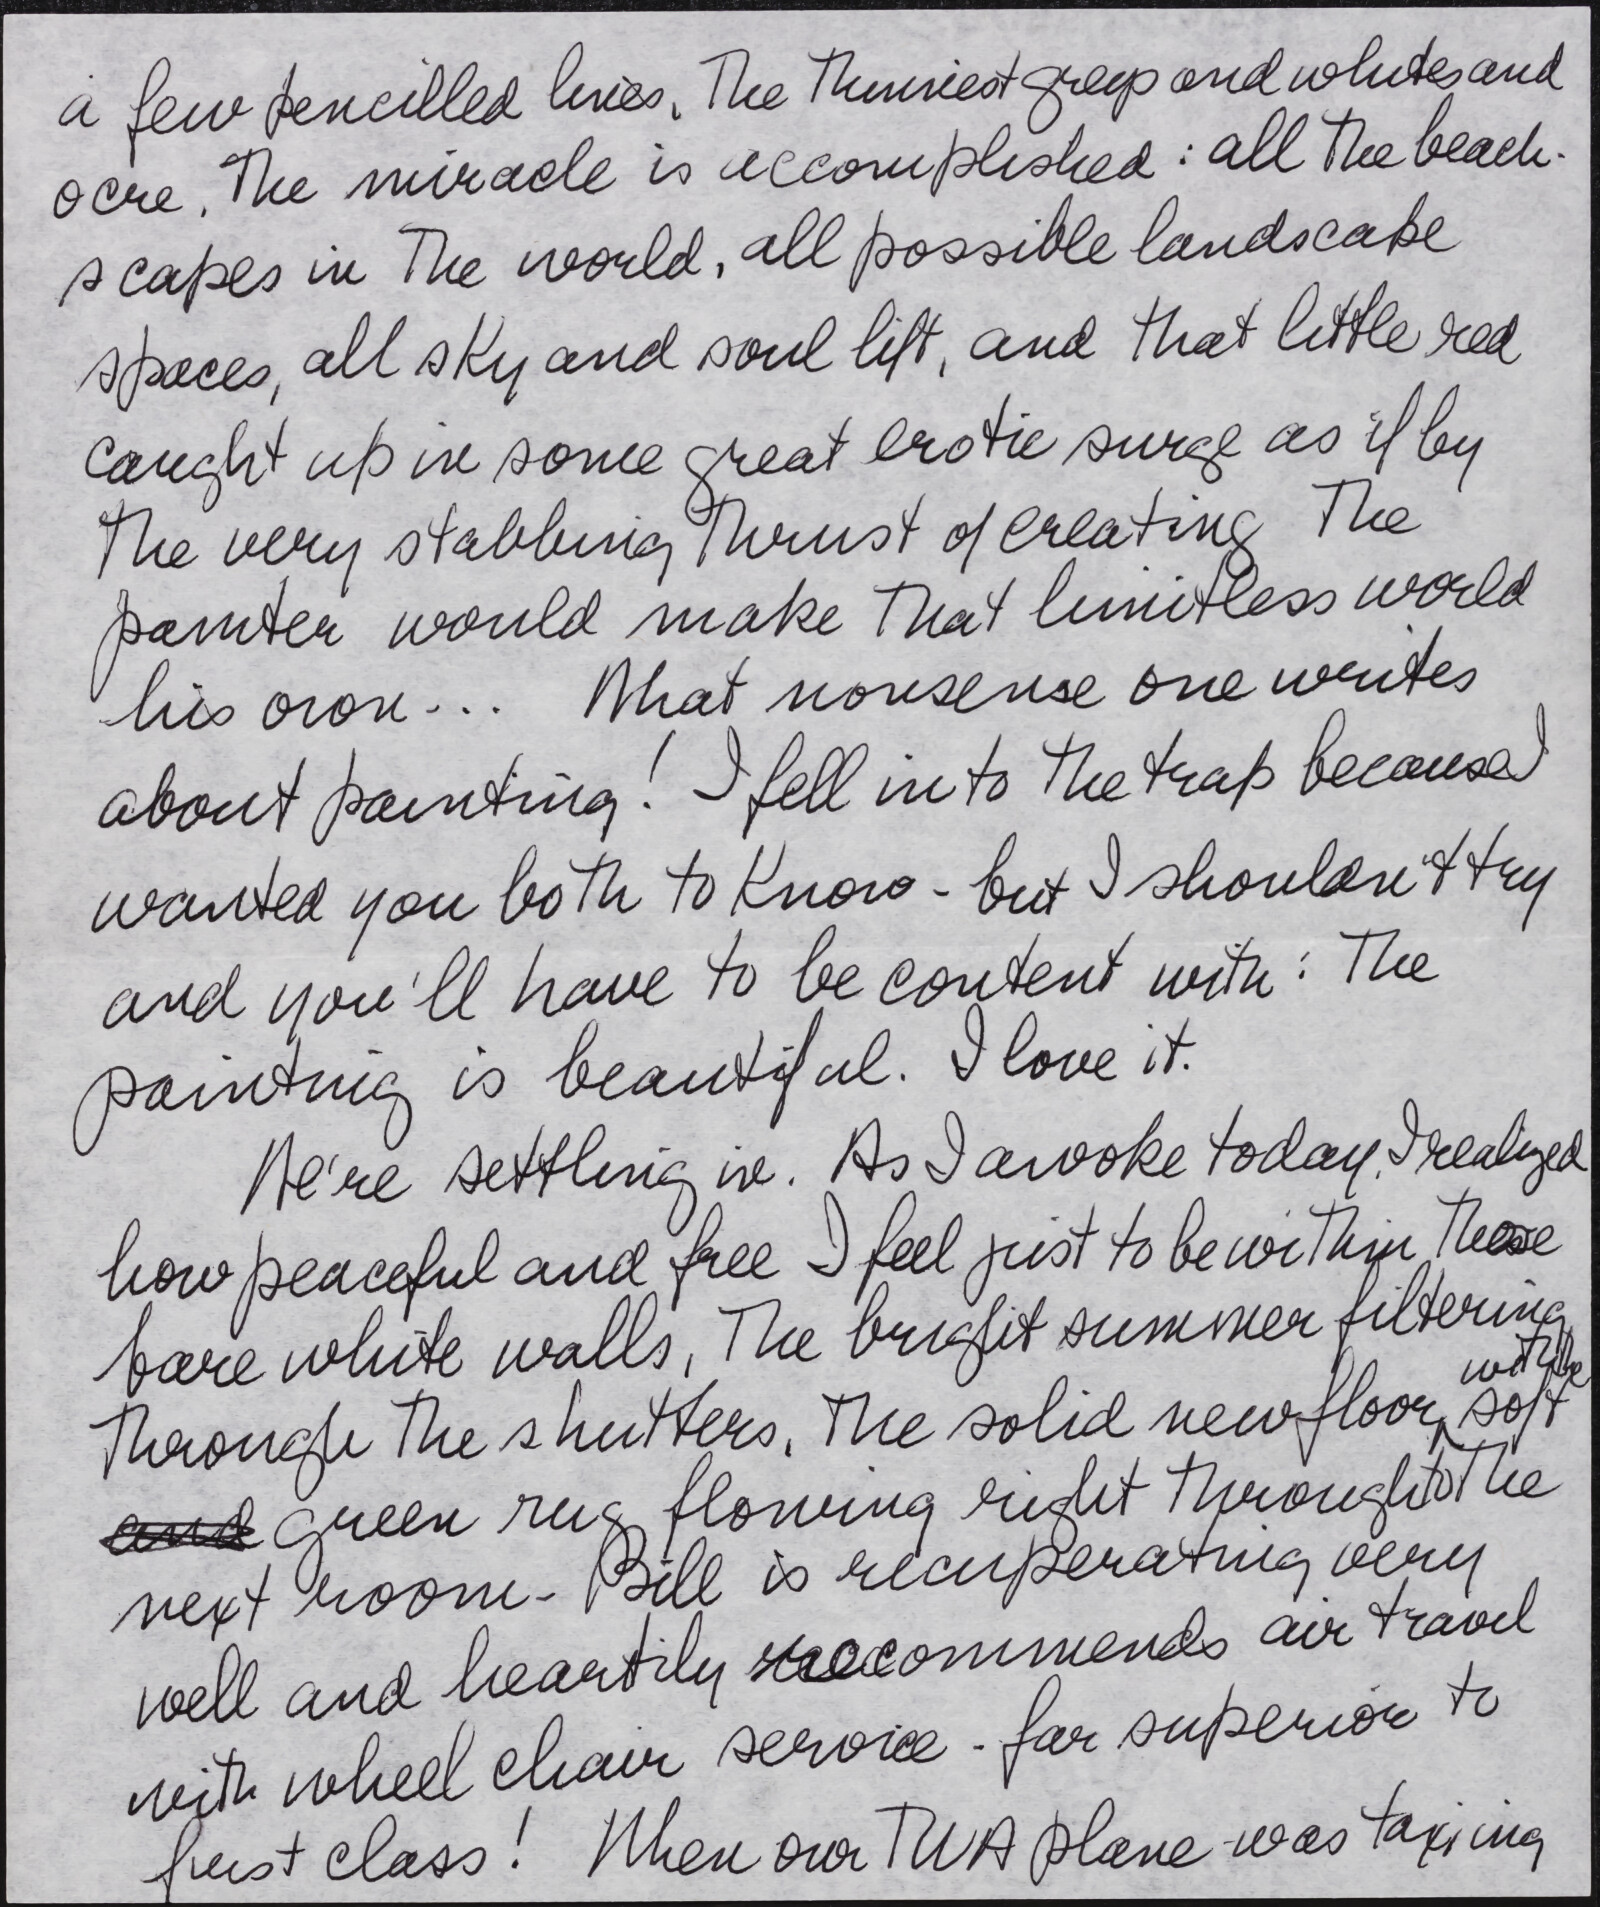 a few pencilled lines, the thinniest greys and whites and
ocre. The miracle is accomplished: all the beach-
scapes in the world, all possible landscape
spaces, all sky and soul lift, and that little red
caught up in some great erotic surge as if by
the very stabbing thrust of creating the
painter would make that limitless world
his own... What nonsense one writes
about painting! I fell into the trap because I
wanted you both to know - but I shouldn't try
and you'll have to be content with: The
painting is beautiful. I love it.
We're settling in. As I awoke today, I realized
how peaceful and free I feel just to be within these
bare white walls, the bright summer filtering
through the shutters, the solid new floor, with the soft
and green rug flowing right through to the
next room - Bill is recuperating very
well and heartily recommends air travel
with wheel chair service - far superior to
first class! When our TWA plane was taxiing